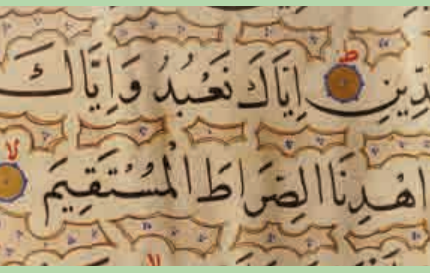 ّدِينِ ط اِيَّاكَ نَعْبُدُ وَاِيَّاكَ
اهْدِنَا الصِّرَاطَ الْمُسْتَقِيمَ لا